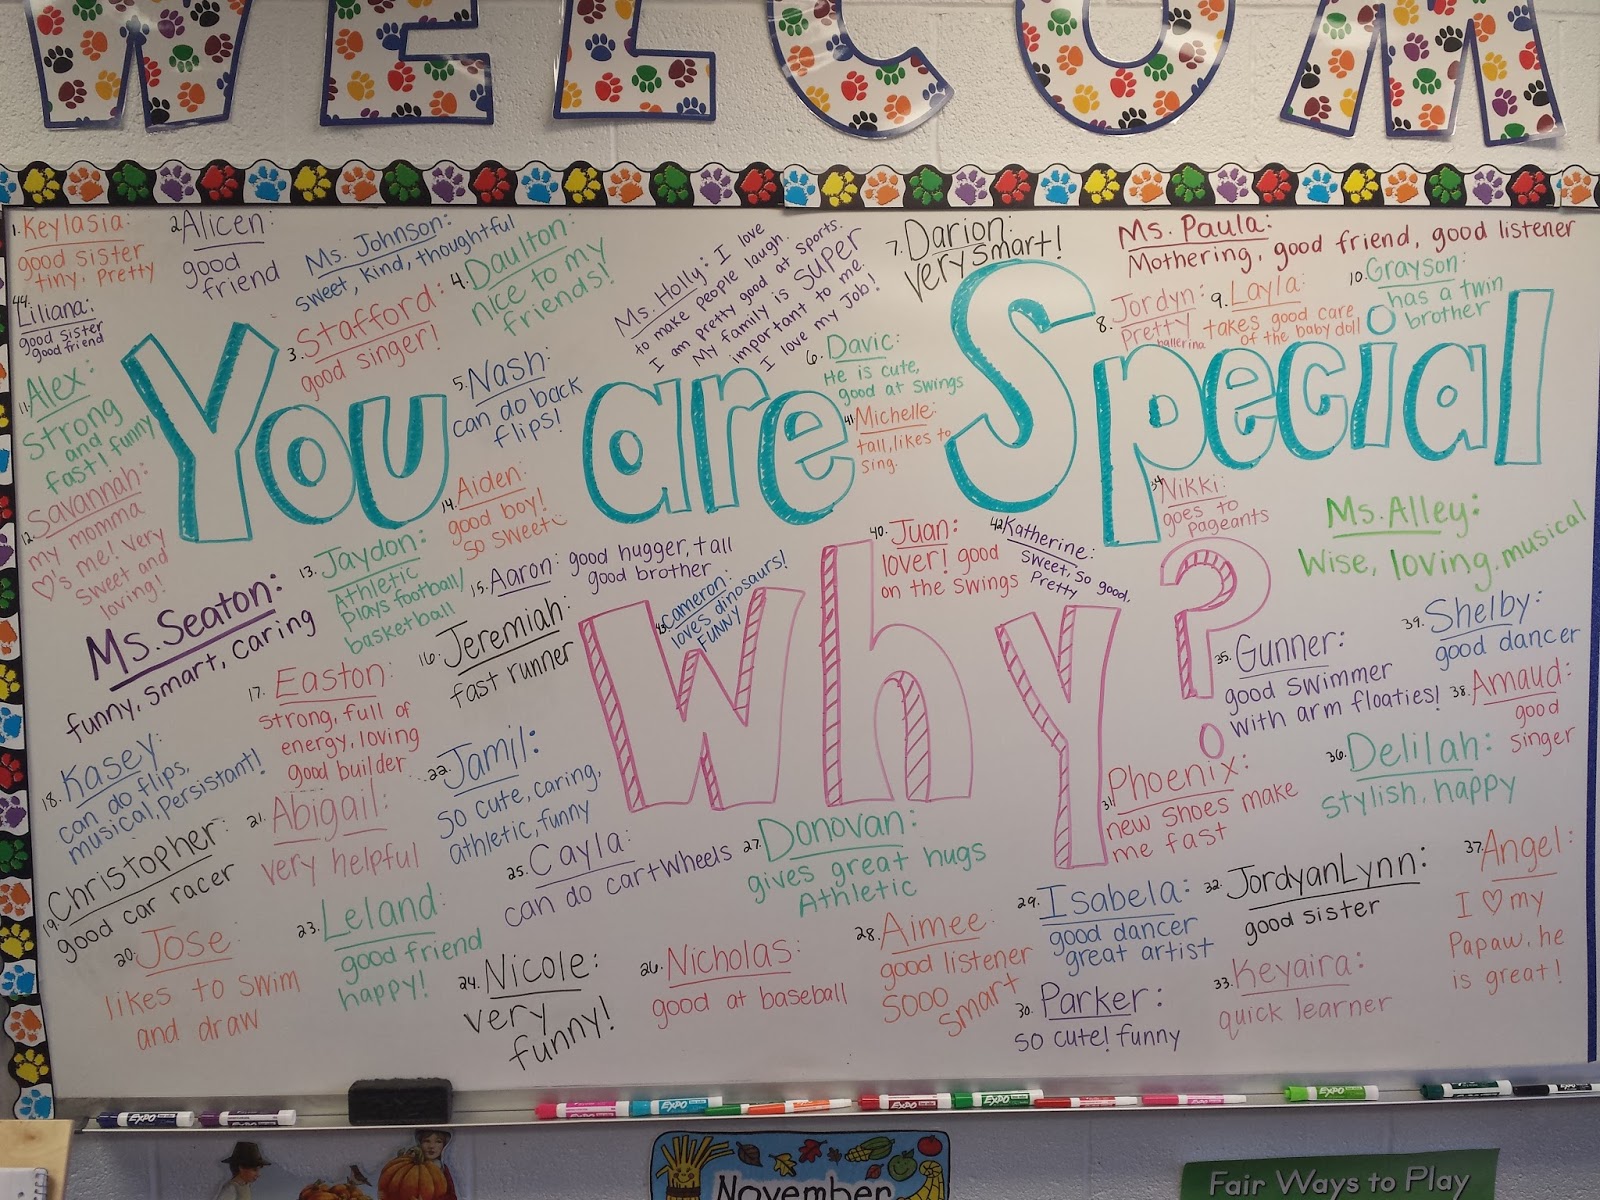 WELCOM
1. Keylasia:
good sister
tiny, pretty
2. Alicen:
good
friend
Ms. Johnson:
sweet, kind, thoughtful
4. Daulton:
nice to my
friends!
Ms. Holly: I love
to make people laugh.
I am pretty good at sports.
My family is SUPER
important to me.
I love my Job!
7. Darion:
very smart!
Ms. Paula:
Mothering, good friend, good listener
44. Liliana:
good sister
good friend
3. Stafford:
good singer!
5. Nash:
can do back
flips!
6. Davic:
He is cute,
good at swings
8. Jordyn:
pretty
ballerina
9. Layla:
takes good care
of the baby doll
10. Grayson:
has a twin
brother
11. Alex:
Strong
and
fast! funny
You are Special
41. Michelle:
tall, likes to
sing.
12. Savannah:
my momma
♡'s me! Very
sweet and
loving!
14. Aiden:
good boy!
so sweet
34. Nikki:
goes to
pageants
Ms. Alley:
Wise, loving, musical
13. Jaydon:
Athletic
plays football/
basketball
15. Aaron: good hugger, tall
good brother
43. Cameron:
loves dinosaurs!
FUNNY
40. Juan:
lover! good
on the swings
42. Katherine:
sweet, so good,
Pretty
Why?
Ms. Seaton:
funny, smart, caring
16. Jeremiah:
fast runner
35. Gunner:
good swimmer
with arm floaties!
39. Shelby:
good dancer
17. Easton:
strong, full of
energy, loving
good builder
38. Arnaud:
good
singer
18. Kasey:
can do flips,
musical, Persistant!
22. Jamil:
so cute, caring,
athletic, funny
31. Phoenix:
new shoes make
me fast
36. Delilah:
stylish, happy
21. Abigail:
very helpful
19. Christopher:
good car racer
25. Cayla:
can do cartwheels
27. Donovan:
gives great hugs
Athletic
37. Angel:
I ♡ my
Papaw, he
is great!
20. Jose
likes to swim
and draw
23. Leland:
good friend
happy!
29. Isabela:
good dancer
great artist
32. JordyanLynn:
good sister
24. Nicole:
very
funny!
26. Nicholas:
good at baseball
28. Aimee:
good listener
sooo
smart
30. Parker:
so cute! funny
33. Keyaira:
quick learner
EXPO
EXPO
EXPO
EXPO
November
Fair Ways to Play